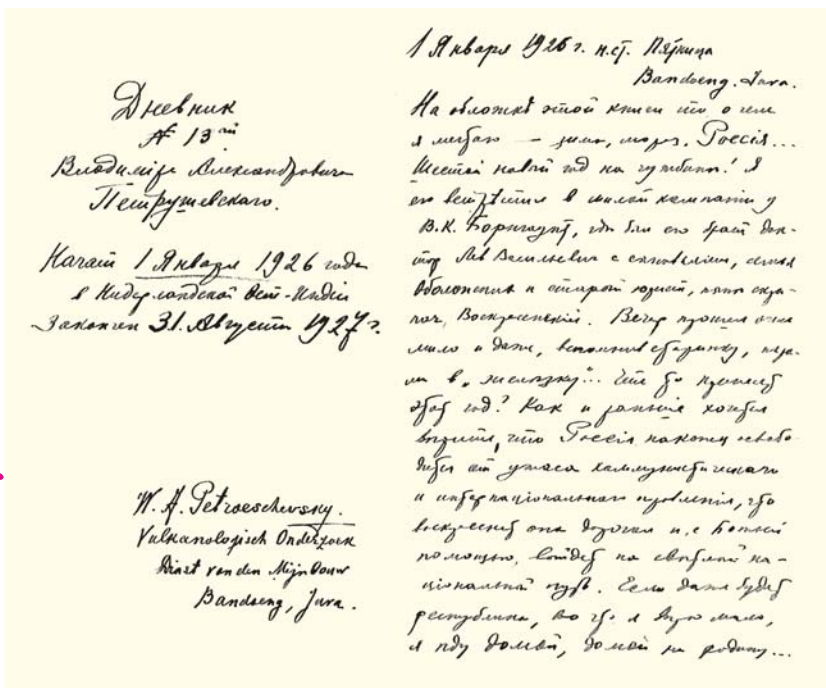 Дневник
№ 13ый
Владимiра Александровича
Петрушевскаго.
Начатъ 1 Января 1926 года
в Нидерландской Ост-Индiи
Закончен 31. Августа 1927 г.
W. A. Petroeschevsky.
Vulkanologisch Onderzoek
Dienst van den Mijnbouw
Bandoeng, Java.
1 Января 1926 г. н.ст. Пятница
Bandoeng. Java.
На обложкѣ этой книги то о чем
я мечтаю — зима, мороз. Россiя...
Шестой новый год на чужбинѣ! Я
его встрѣтил в милой компанiи у
В.К. Борнгаупт, где был его брат док-
тор Лев Васильевич с сыновьями, семья
Оболенских и старый юрист,
Воскресенскiй. Вечер прошел очень
мило и даже, вспомнив старинку, игра-
ли в „железку"... Что то принесет
этот год? Как и раньше хочется
вѣрить, что Россiя наконец освобо-
дится от ужаса коммунистическаго
и интернацiональнаго правленiя, что
воскреснет она дорогая и, с Божьей
помощью, выйдет на свѣтлый на-
цiональный путь. Если даже будет
республика, во что я вѣрю мало,
я иду домой, домой на родину...